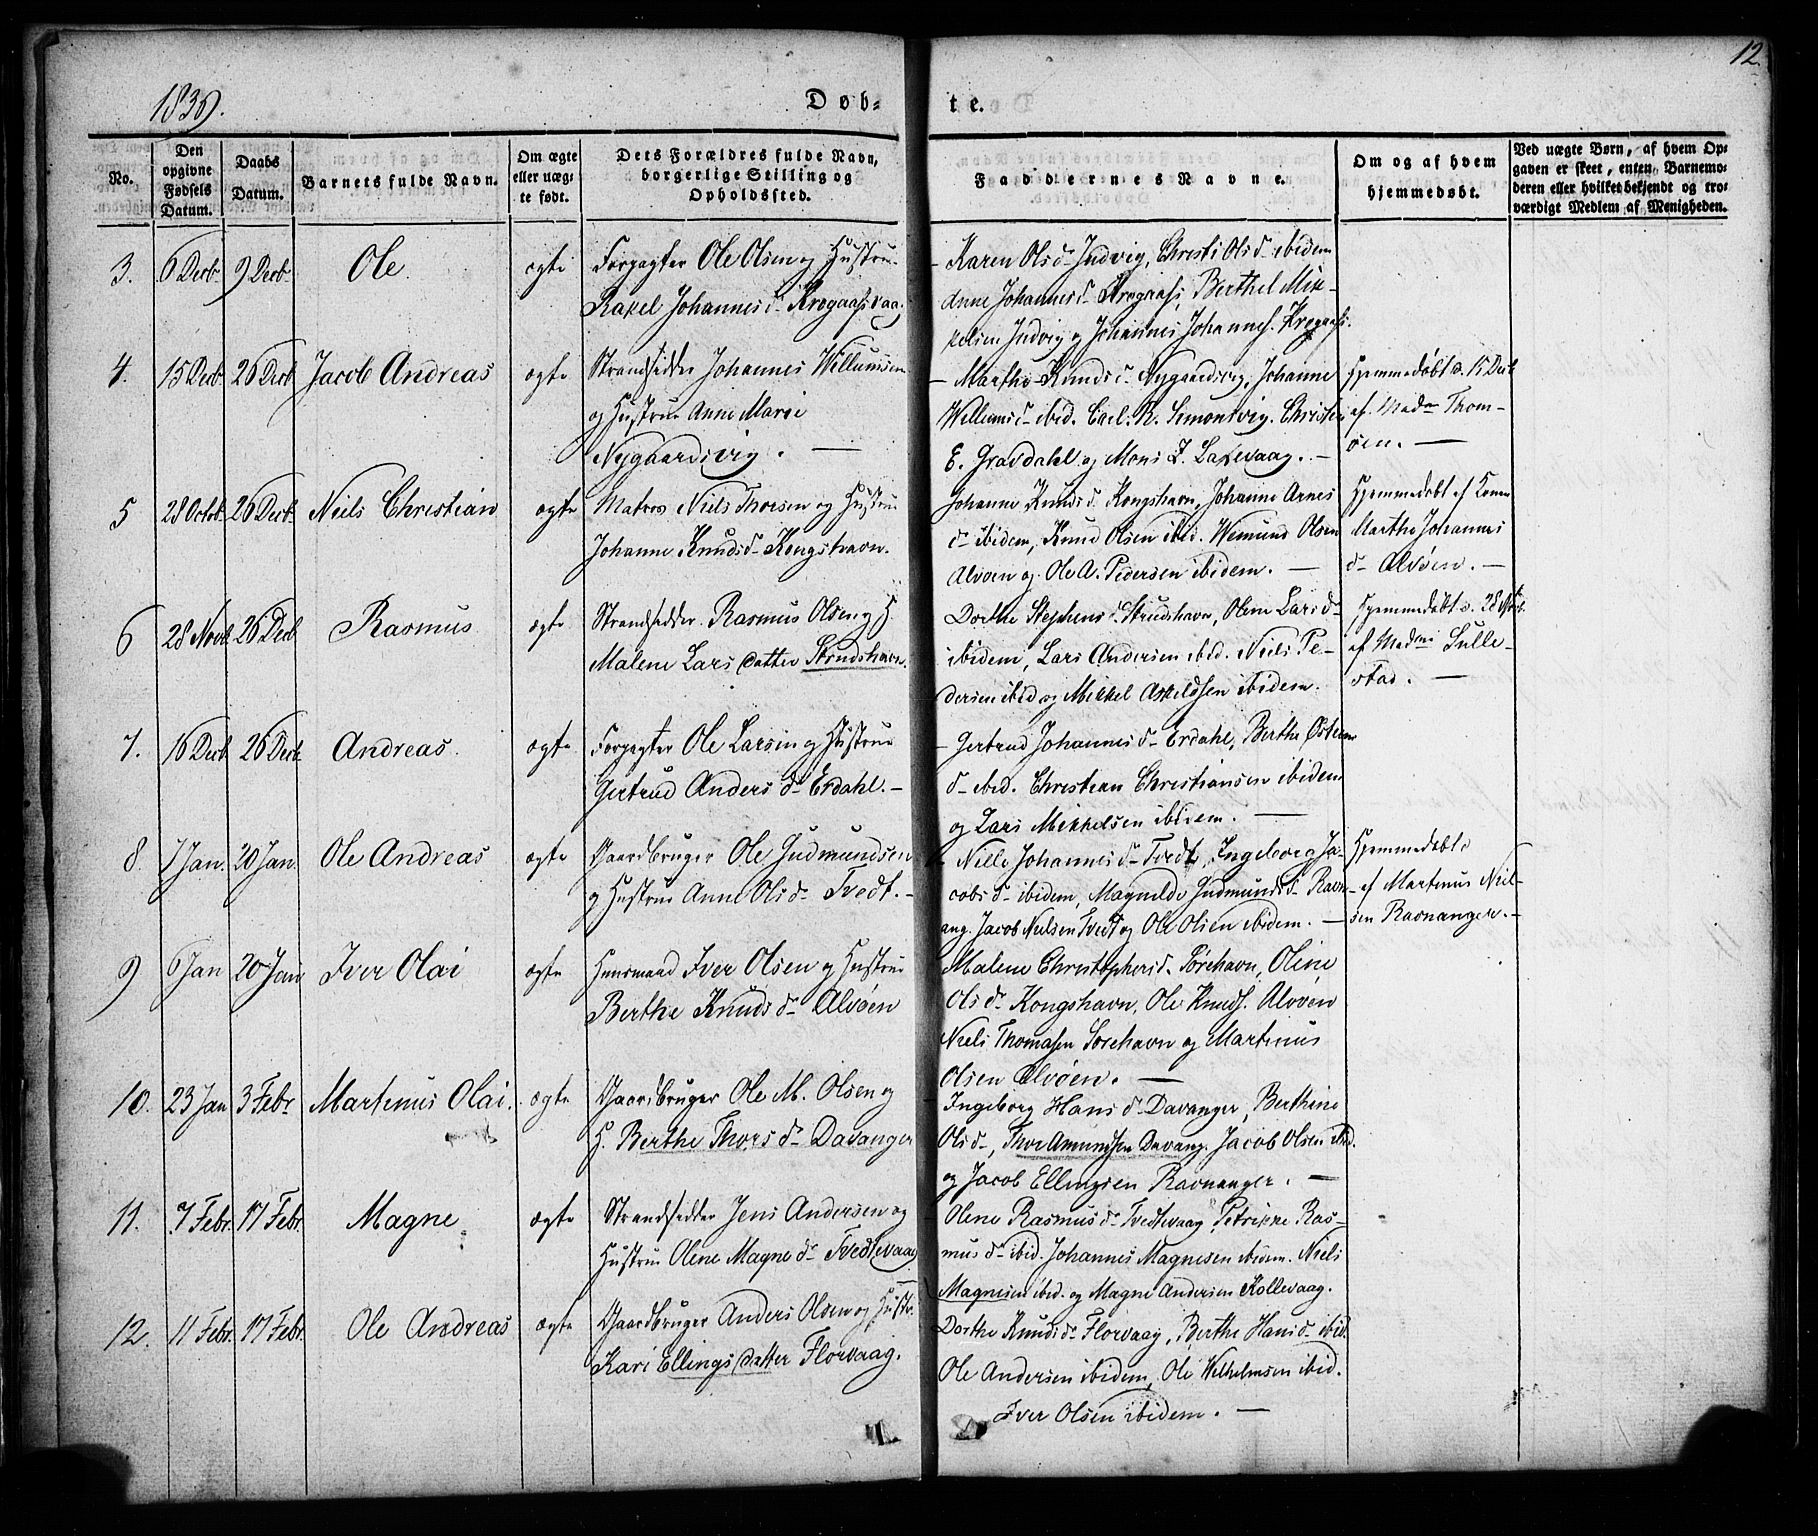 12.
1839.
Døb- te.
No.
Den opgivne Fødsels Datum.
Daabs Datum.
Barnets fulde Navn.
Om ægte eller uægte født.
Dets Forældres fulde Navn, borgerlige Stilling og Opholdssted.
Faddernes Navne.
Om og af hvem hjemmedøbt.
Ved uægte Børn, af hvem Opgaven er skeet, enten Barnemoderen eller hvilket bekjendt og troværdigt Medlem af Menigheden.
3. 6 Decb. 9 Decb. Ole ægte
Forpagter Ole Olsen og Hustrue
Rakel Johannesd.
Karen Olsd. Indvig, Christi Olsd. ibidem
Anne Johannesd. Berthel Mik-
kelsen Indvig og Johannes Johannes.
4. 15 Decb. 26 Decb. Jacob Andreas ægte
Strandsidder Johannes Willumsen
og Hustrue Anne Marie
Nygaardsvig. —
Marthe Knudsd. Nygaardsvig, Johanne
Willumsd. ibid. Carl. R. Simonsvig. Christen
E. Gravdahl og Mons I. Laxevaag. —
Hjemmedøbt d. 15 Decb
af Madm Thom-
øen. —
5 28 Octob. 26 Decb. Niels Christian ægte
Matros Niels Thorsen og Hustrue
Johanne Knudsd. Kongshavn.
Johanne Knudsd. Kongshavn, Johanne Arnes
d. ibidem, Knud Olsen ibid. Wemund Olsen
Alvøen og Ole A. Pedersen ibidem. —
Hjemmedøbt af Konen
Marthe Johannes
d. Alvøen. —
6 28 Novb. 26 Decb Rasmus ægte
Strandsidder Rasmus Olsen og H.
Malene Lars datter Strudshavn.
Dorthe Stephensd. Strudshavn, Olene Larsd.
ibidem, Lars Andersen ibid. Niels Pe-
dersen ibid og Mikkel Askeldsen ibidem.
Hjemmedøbt d. 28
af Madm Sulle-
stad. —
7. 16 Decb 26 Decb. Andreas. ægte
Forpagter Ole Larsen og Hustrue
Gertrud Anders d. Erdahl. —
Gertrud Johannesd. Erdahl, Berthe
d. ibid. Christian Christiansen ibidem
og Lars Mikkelsen ibidem. —
8 7 Jan. 20 Jan. Ole Andreas ægte
Gaardbruger Ole Gudmundsen
og Hustrue Anne Olsd. Tvedt. —
Nille Johannesd. Tvedt, Ingeborg Ja-
cobsd. ibidem, Magnilde Gudmundsd. Ravn-
ang. Jacob Nielsen Tvedt og Ole Olsen ibidem. —
Hjemmedøbt
af Martinus Niel-
sen Ravnanger. —
9 6 Jan 20 Jan Iver Olai ægte
Huusmand Iver Olsen og Hustrue
Berthe Knudsd. Alvøen
Malene Christophersd. Sørehavn, Oline
Olsd. Kongshavn, Ole Knuds. Alvøen
Niels Thomasen Sørehavn og Martinus
Olsen Alvøen. —
10. 23 Jan 3 Febr Martinus Olai. ægte
Gaardbruger Ole M. Olsen og
H. Berthe Thorsd. Davanger
Ingeborg Hansd. Davanger, Berthine
Olsd., Thor Amundsen Davang. Jacob Olsen ibid.
og Jacob Ellingsen Ravnanger. —
11. 7 Febr. 17 Febr. Magne ægte
Strandsidder Jens Andersen og
Hustrue Olene Magned. Tvedtevaag
Olene Rasmusd. Tvedtevaag, Petrikke Ras-
musd. ibid. Johannes Magnesen ibidem. Niels
Magnesen ibid. og Magne Andersen Kollevaag.
12. 11 Febr. 17 Febr. Ole Andreas ægte
Gaardbruger Anders Olsen og Hustr.
Kari Ellings datter Florvaag.
Dorthe Knudsd. Florvaag, Berthe Hansd. ibid.
Ole Andersen ibidem, Ole Wilhelmsen ibid.
Iver Olsen ibidem. —